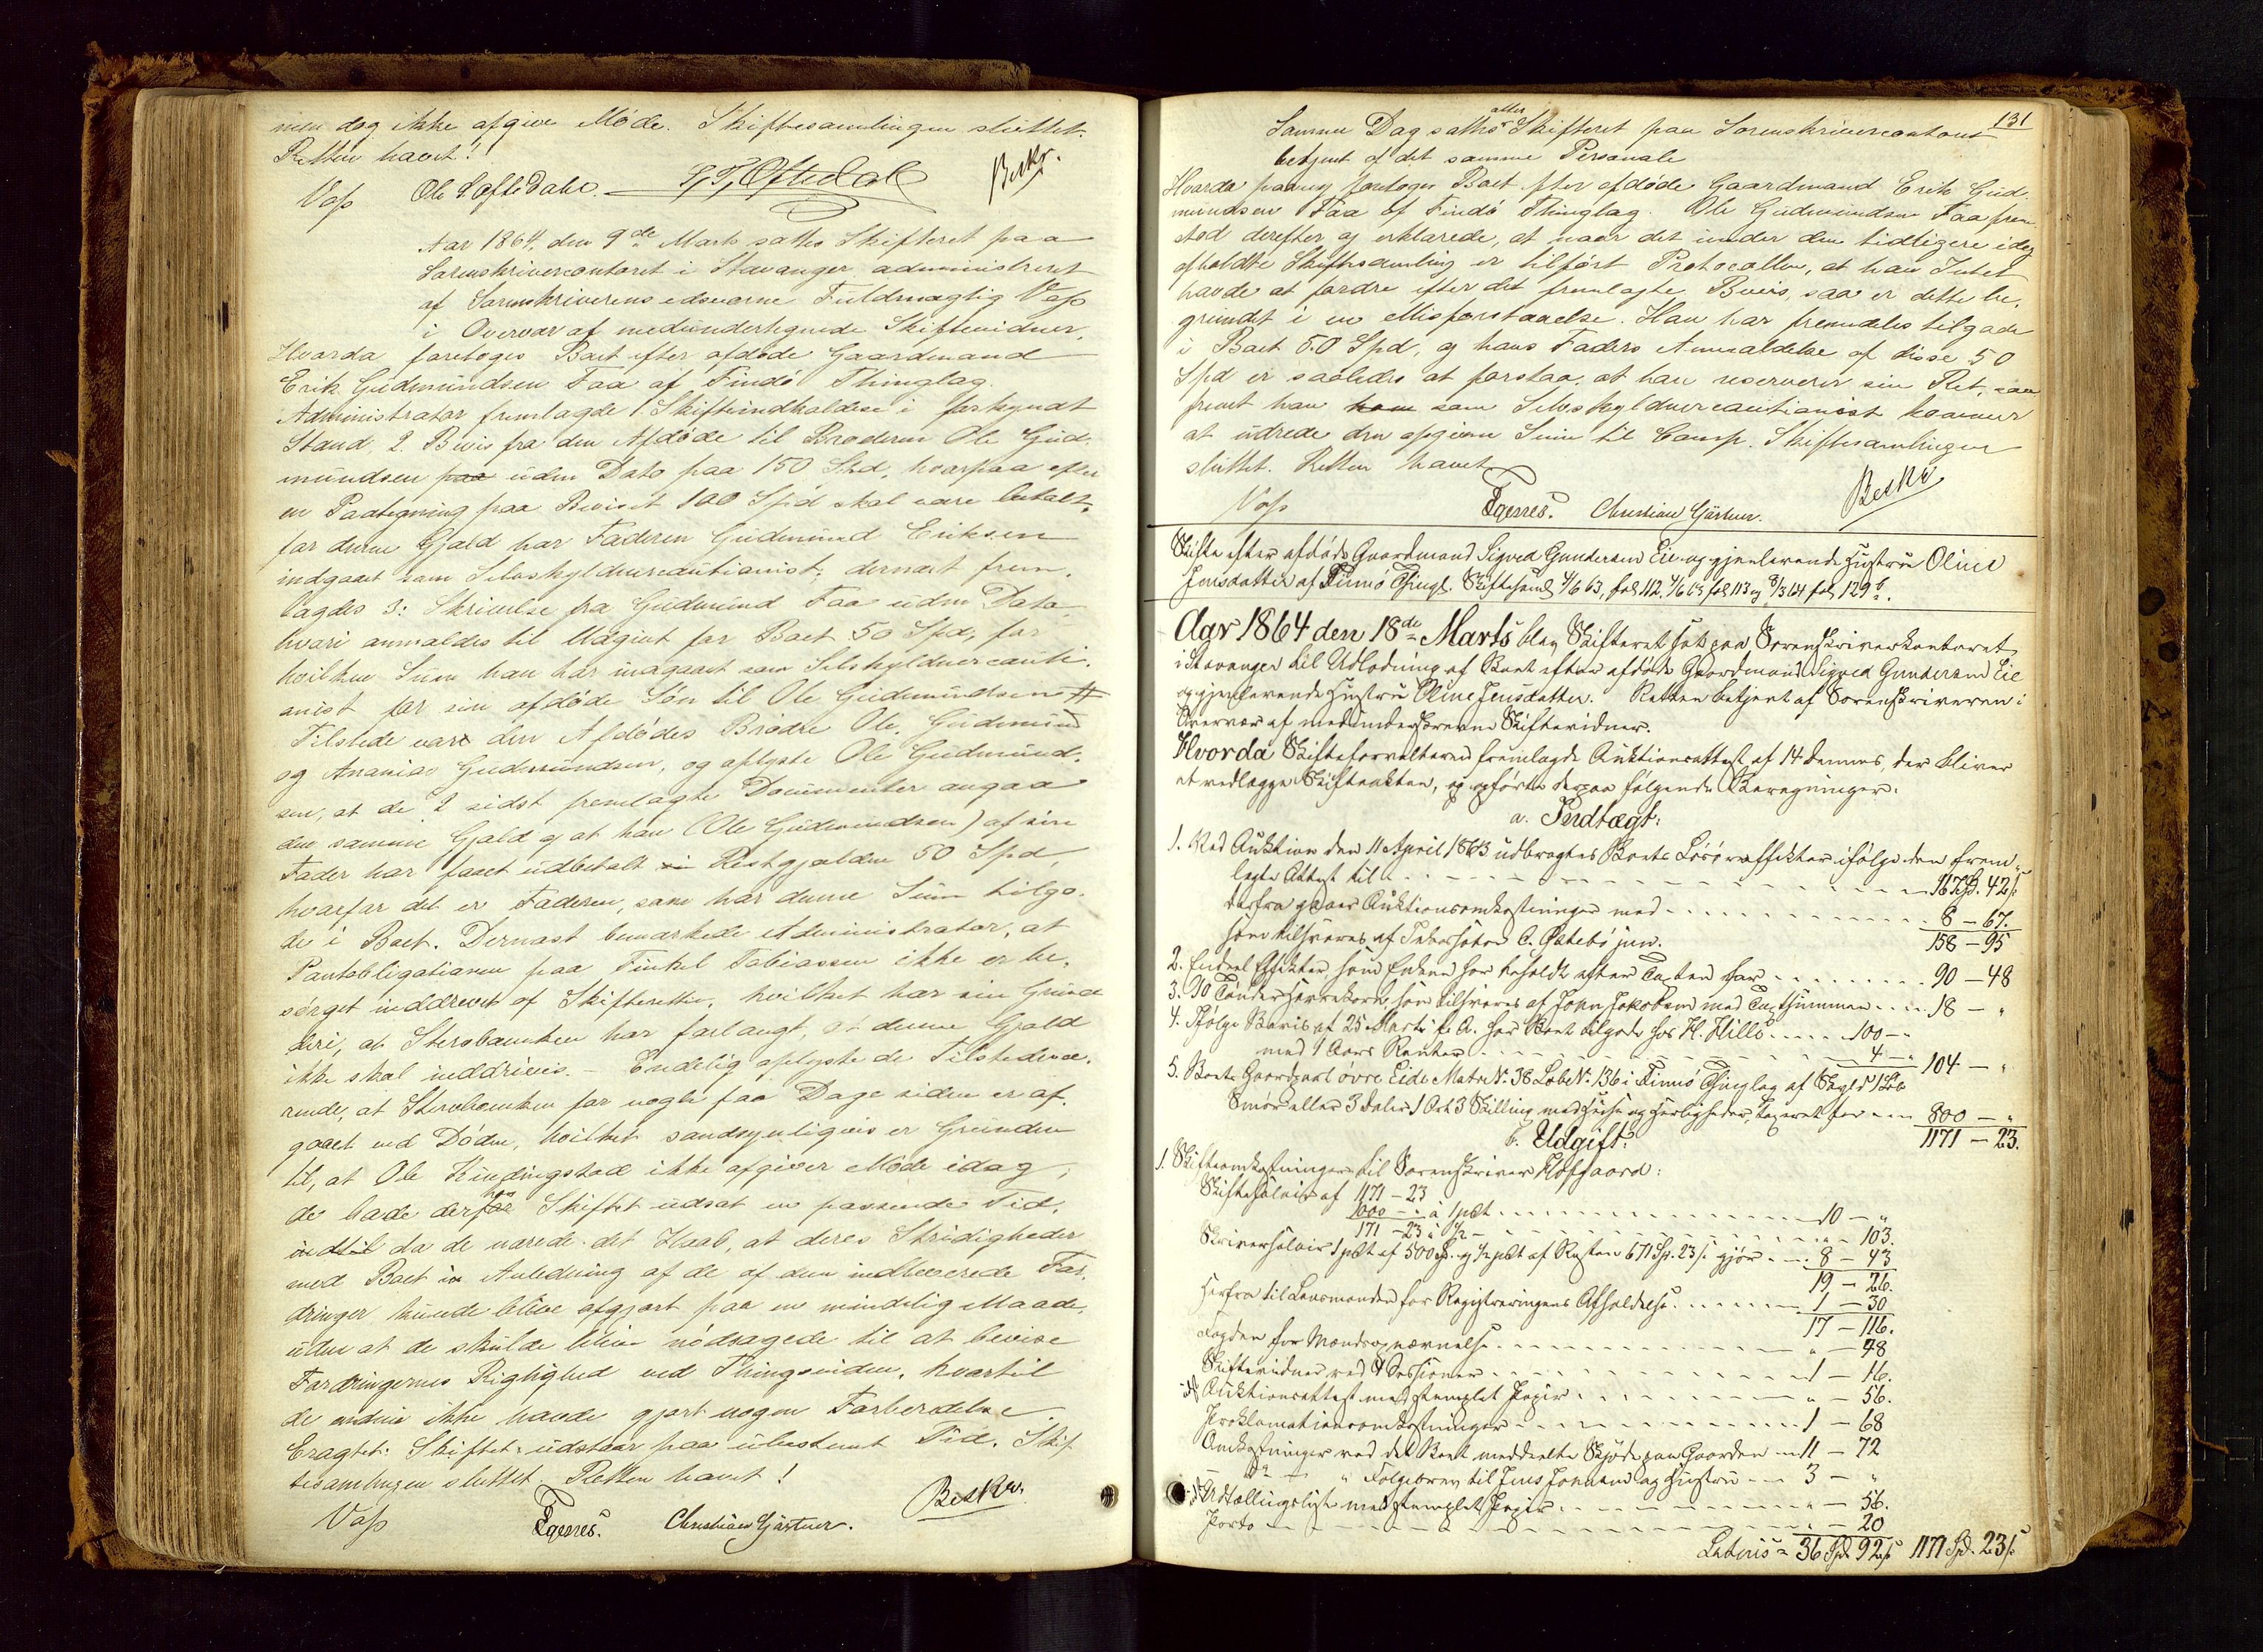 men dog ikke afgive Møde. Skiftesamlingen sluttet.
Retten hævet!
Voss Ole L Oftedahl. T. T. Oftedal Beskr.
Aar 1864, den 9de Marts sattes Skifteret paa
Sorenskrivercontoret i Stavanger administreret
af Sorenskriverens edsvorne Fuldmægtig Voss
i Overvær af medundertegnede Skiftevidner,
Hvorda foretoges Boet efter afdøde Gaardmand
Erik Gudmundsen Faa af Findø Thinglag.
Administrator fremlagde 1. Skifteindkaldelse i forkyndt
Stand, 2. Bevis fra den Afdøde til Broderen Ole Gud-
mundsen paa uden Dato paa 150 Spd, hvorpaa efter
en Paategning paa Beviset 100 Spd skal være betalt,
for denne Gjæld har Faderen Gudmund Eriksen
indgaaet som Selvskyldnercautionist; dernæst frem-
lagdes 3: Skrivelse fra Gudmund Faa uden Dato
hvori anmeldes til Udgivt for Boet 50 Spd, for
hvilken Sum han har indgaaet som Selvskyldnercauti-
onist for sin afdøde Søn til Ole Gudmundsen #
Tilstede vare den Afdødes Brødre Ole, Gudmund
og Ananias Gudmundsen, og oplyste Ole Gudmund-
sen, at de 2 sidst fremlagte Documenter angaa
den samme Gjæld og at han (Ole Gudmundsen) af sin
Fader har faaet udbetalt Restgjælden 50 Spd,
hvorfor det er Faderen, som har denne Sum tilgo-
de i Boet. Dernæst bemærkede Administrator, at
Pantobligationen paa Tinkel Tobiassen ikke er be-
sørget inddrevet af Skifteretten, hvilket har sin Grund
deri, at Stervboenken har forlangt, at denne Gjæld
ikke skal inddrives. – Endelig oplyste de Tilstedevæ-
rende, at Stervboenken for nogle faa Dage siden er af-
gaaet ved Døden, hvilket sandsynligvis er Grunden
til, at Ole Kindingstad ikke afgiver Møde idag;
de bade derfor Skiftet udsat en passende Tid,
indtil da de nærede det Haab, at deres Stridigheder
med Boet in Anledning af de af dem indleverede For-
dringer kunde blive afgjort paa en mindelig Maade,
uden at de skulde blive nødsagede til at bevise
Fordringernes Rigtighed ved Thingsviden, hvortil
de endnu ikke havde gjort nogen Forberedelse
Eragtet: Skiftet udstaar paa ubestemt Tid. Skif-
tesamlingen sluttet. Retten hævet!
Voss Egenes. Christian Gärtner. Beskr.
131
Samme Dag sattes atter Skifteret paa Sorenskrivercontoret
betjent af det samme Personale
Hvorda paany foretoges Boet efter afdøde Gaardmand Erik Gud-
mundsen Faa af Findø Thinglag. Ole Gudmundsen Faa frem-
stod derefter og erklærede, at naar det under den tidligere idag
afholdte Skiftesamling er tilført Protocollen, at han Intet
havde at fordre efter det fremlagte Bevis, saa er dette be-
grundet i en Misforstaaelse. Han har fremdeles tilgode
i Boet 50 Spd, og hans Faders Anmeldelse af disse 50
Spd er saaledes at forstaa, at han reserverer sin Ret, saa
fremt han som Selvskyldnercautionist kommer
at udrede den opgivne Sum til Comp. Skiftesamlingen
sluttet. Retten hævet
Voss Egenes. Christian Gärtner. Beskr
Skifte efter afdøde Gaardmand Sigved Gundersen Eie og gjenlevende Hustru Oline
Jensdatter af Finnø Thingl. Skiftesaml 4/6 63, fol 112, 4/6 63 fol 113 og 8/3 64 fol 129 b.
Aar 1864 den 18de Marts blev Skifteret sat paa Sorenskriverkontoret
i Stavanger til Udlodning af Boet efter afdøde Gaardmand Sigved Gundersen Eie
og gjenlevende Hustru Oline Jensdatter. Retten betjent af Sorenskriveren i
Overvær af medunderskrevne Skiftevidner.
Hvorda Skifteforvalteren fremlagde Auktionsattest af 14 dennes, der bliver
at vedlægge Skifteakten, og opførte derpaa følgende Beregninger:
a. Indtægt:
1. Ved Auktion den 11 April 1863 udbragtes Boets Løsøreeffekter ifølge den frem-
lagte Attest til 167 Spd. 42 s
derfra gaaer Auktionsomkostninger med 8 – 67.
som tilsvares af Inkassator C. Østebø jun. 158 – 95
2. Endeel Effekter, som Enken har beholdt efter Taxten for 90 – 48
3. 10 Tønder Havrekorn, som tilsvares af John Jakobsen med Taxtsummen 18 – "
4. Ifølge Bevis af 25 Marts f. A. har Boet tilgode hos H. Hille 100 – "
med 1 Aars Renter 4 – " 104 – "
5. Boets Gaardpart øvre Eide Matr. No. 38 Løbe No. 136 i Finnø Thinglag af Skyld 1 Løb
Smør eller 3 Daler 1 Ort 3 Skilling med Huse og Herligheder, taxeret for 800 – "
1171 – 23.
b. Udgift:
1. Skifteomkostninger til Sorenskriver Hofgaard:
Skiftesalair af 1171 – 23
1000 – " à 1 pct 10 – "
171 – 23 à ½ – " – 103.
Skriversalair 1 pct af 500 Spd. og ½ pct af Resten 671 Sp. 23 s gjør 8 – 43
19 – 26.
Herfra til Lensmanden for Registreringens Afholdelse 1 – 30
17 – 116.
Fogden for Mandsopnævnelse " – 48
Skiftevidner ved 4 Sessioner 1 – 16.
Auktionsattest med stemplet Papir " – 56.
Proklamationsomkostninger 1 – 68
Omkostninger ved det Boet meddeelte Skjøde paa Gaarden 11 – 72
– do – " Følgebrev til Jens Jonsen og Hustru 3 – "
Udtællingslist med stemplet Papir " – 56.
Porto " – 20
Lateris = 36 Spd 92 s 1171 Spd. 23 s